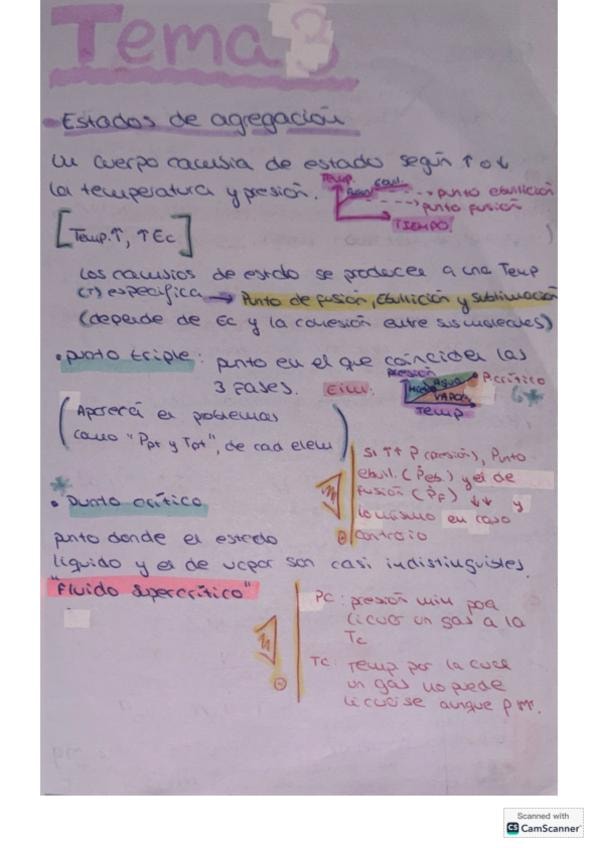 Tema 3
• Estados de agregación
Un cuerpo cambia de estado según ↑ o ↓
la temperatura y presión.
Temp.
Ebul.
punto ebullición
punto fusión
TIEMPO
[Temp.↑, ↑Ec]
Los cambios de estado se producen a una Temp
(T) específica → Punto de fusión, Ebullición y sublimación
(depende de Ec y la cohesión entre sus moléculas)
• punto triple: punto en el que coinciden las
3 fases.
presión
Hielo
Agua
VAPOR
P.crítico
Temp
(Aparecer en problemas
como "Ppt y Tpt", de cad elem)
Si ↑↑ P (presión), Punto
ebull. (Peb.) y el de
fusión (PF) ↓↓ y
lo mismo en caso
contrario
* • Punto crítico
punto donde el estado
líquido y el de vapor son casi indistinguibles.
"Fluido supercrítico"
PC: presión mín para
licuar un gas a la
Tc
Tc: Temp por la cual
un gas no puede
licuarse aunque P↑↑.
Scanned with
CS CamScanner